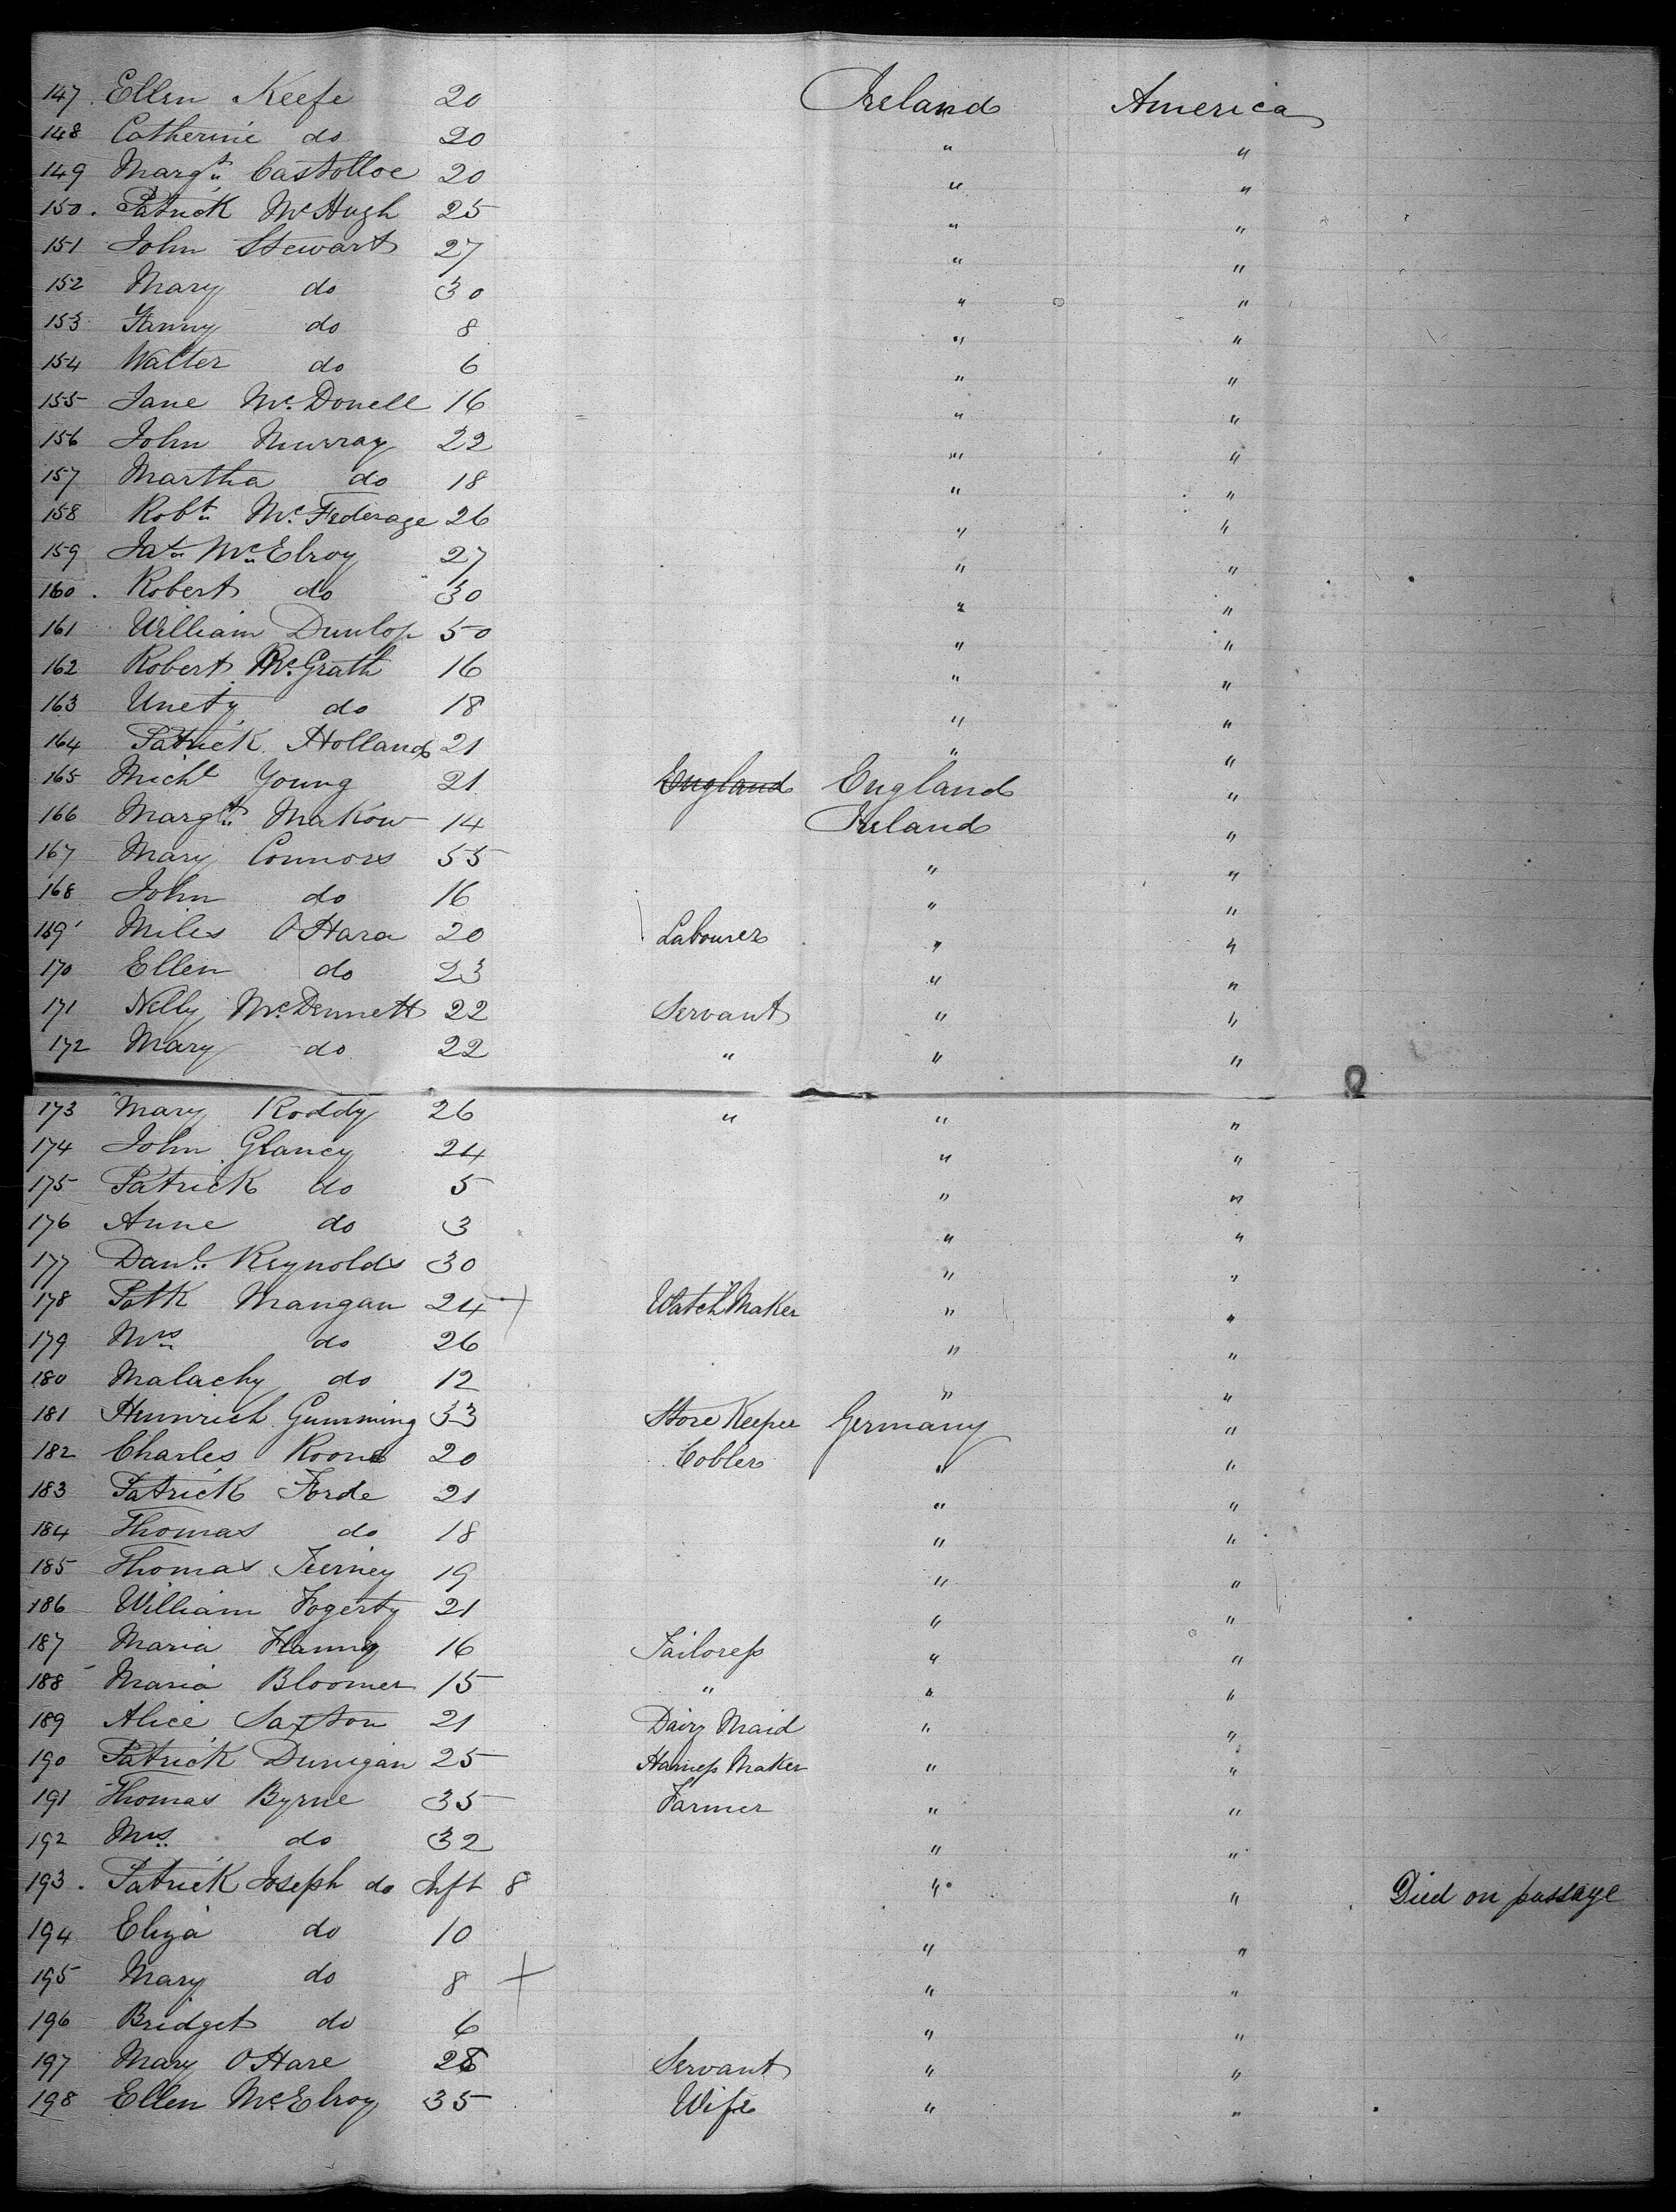 147. Ellen Keefe 20 Ireland America
148 Catherine do 20 " "
149 Margt Castolloe 20 " "
150. Patrick McHugh 25 " "
151 John Stewart 27 " "
152 Mary do 30 " "
153 Fanny do 8 " "
154 Walter do 6 " "
155 Jane McDonell 16 " "
156 John Murray 22 " "
157 Martha do 18 " "
158 Robt McFederage 26 " "
159 Jas McElroy 27 " "
160. Robert do 30 " "
161 William Dunlop 50 " "
162 Robert McGrath 16 " "
163 Unety do 18 " "
164 Patrick Holland 21 " "
165 Michl Young 21 England England "
166 Margt Makow 14 Ireland "
167 Mary Connors 55 " "
168 John do 16 " "
169 Miles OHara 20 Labourer " "
170 Ellen do 23 " "
171 Nelly McDennett 22 Servant " "
172 Mary do 22 " " "
173 Mary Roddy 26 " " "
174 John Glancy 24 " "
175 Patrick do 5 " "
176 Anne do 3 " "
177 Danl. Reynolds 30 " "
178 Patk Mangan 24 + Watch Maker " "
179 Mrs do 26 " "
180 Malachy do 12 " "
181 Heinrich Gumming 33 Store Keeper Germany "
182 Charles Roone 20 Cobler " "
183 Patrick Forde 21 " "
184 Thomas do 18 " "
185 Thomas Teirney 19 " "
186 William Fogerty 21 " "
187 Maria Hanny 16 Tailoress " "
188 Maria Bloomer 15 " " "
189 Alice Saxton 21 Dairy Maid " "
190 Patrick Dunigan 25 Harness Maker " "
191 Thomas Byrne 35 Farmer " "
192 Mrs do 32 " "
193. Patrick Joseph do Inft 8 " " Died on passage
194 Eliza do 10 " "
195 Mary do 8 + " "
196 Bridget do 6 " "
197 Mary OHare Servant " "
198 Ellen McElroy 35 Wife " "